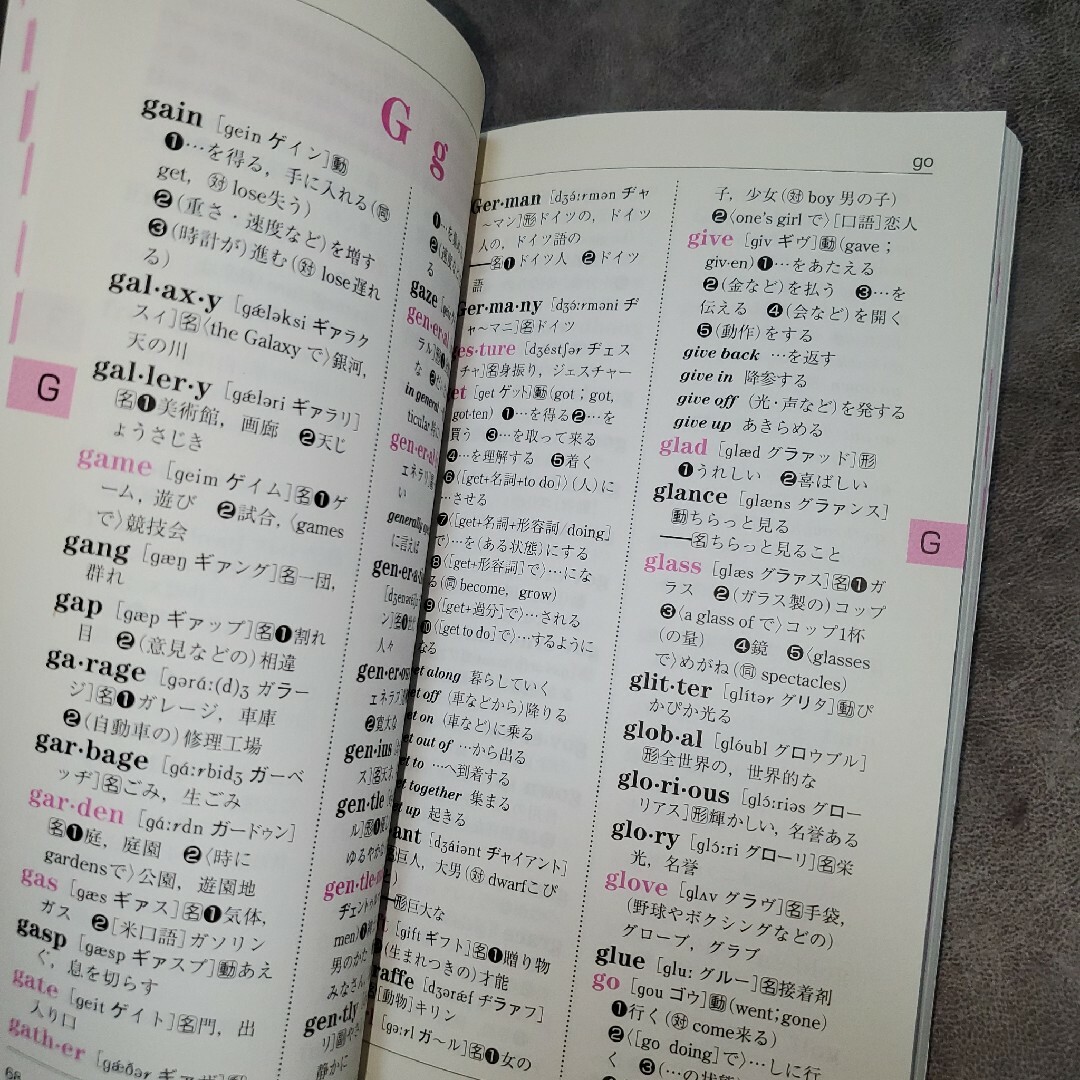 G g
gain [gein ゲイン]動
❶…を得る，手に入れる(同
get，対lose失う)
❷(重さ・速度など)を増す
❸(時計が)進む(対lose遅れ
る)
gal·ax·y [gǽləksi ギァラク
スィ]名〈the Galaxyで〉銀河，
天の川
gal·ler·y [gǽləri ギァラリ]
名❶美術館，画廊 ❷天じ
ょうさじき
game [geim ゲイム]名❶ゲ
ーム，遊び ❷試合，〈games
で〉競技会
gang [gæŋ ギァング]名一団，
群れ
gap [gæp ギァップ]名❶割れ
目 ❷(意見などの)相違
ga·rage [gərɑ́ː(d)ʒ ガラー
ジ]名❶ガレージ，車庫
❷(自動車の)修理工場
gar·bage [gɑ́ːrbidʒ ガーベ
ッヂ]名ごみ，生ごみ
gar·den [gɑ́ːrdn ガードゥン]
名❶庭，庭園 ❷〈時に
gardensで〉公園，遊園地
gas [gæs ギァス]名❶気体，
ガス ❷[米口語]ガソリン
gasp [gæsp ギァスプ]動あえ
ぐ，息を切らす
gate [geit ゲイト]名門，出
入り口
gath·er [gǽðər
G
68
gaze
gen·er·al
ラル]
な
in general
ticular
gen·er·al
ェネラリ]
い
generally
に言えば
gen·er·a
人々
gen·er·ous
ェネラス]
❷寛大な
gen·ius
gen·tle
ル]
ゆるやか
gen·tle·
ヂェント
men)
男のかた
みなさん
gen·tly
リ]
静かに
go
Ger·man [dʒə́ːrmən ヂャ
～マン]形ドイツの，ドイツ
人の，ドイツ語の
──名❶ドイツ人 ❷ドイツ
語
Ger·ma·ny [dʒə́ːrməni ヂ
ャ～マニ]名ドイツ
ges·ture [dʒéstʃər ヂェス
チャ]名身振り，ジェスチャー
get [get ゲット]動(got；got,
got·ten) ❶…を得る❷…を
買う ❸…を取って来る
❹…を理解する ❺着く
❻〈[get+名詞+to do]〉(人)に
…させる
❼〈[get+名詞+形容詞/doing]
で〉…を(ある状態)にする
❽〈[get+形容詞]で〉…にな
る(同become, grow)
❾〈[get+過分]で〉…される
❿〈[get to do]で〉…するように
なる
get along 暮らしていく
get off (車などから)降りる
get on (車など)に乗る
get out of …から出る
get to …へ到着する
get together 集まる
get up 起きる
giant [dʒáiənt ヂャイアント]
巨人，大男(対dwarfこび
形巨大な
[gift ギフト]名❶贈り物
(生まれつきの)才能
giraffe [dʒərǽf ヂラァフ]
[動物]キリン
[gəːrl ガ～ル]名❶女の
子，少女(対boy 男の子)
❷〈one's girlで〉[口語]恋人
give [giv ギヴ]動(gave；
giv·en)❶…をあたえる
❷(金など)を払う ❸…を
伝える ❹(会など)を開く
❺(動作)をする
give back …を返す
give in 降参する
give off (光・声など)を発する
give up あきらめる
glad [glæd グラァッド]形
❶うれしい ❷喜ばしい
glance [glæns グラァンス]
動ちらっと見る
──名ちらっと見ること
glass [glæs グラァス]名❶ガ
ラス ❷(ガラス製の)コップ
❸〈a glass ofで〉コップ1杯
(の量) ❹鏡 ❺〈glasses
で〉めがね(同spectacles)
glit·ter [glítər グリタ]動ぴ
かぴか光る
glob·al [glóubl グロウブル]
形全世界の，世界的な
glo·ri·ous [glɔ́ːriəs グロー
リアス]形輝かしい，名誉ある
glo·ry [glɔ́ːri グローリ]名栄
光，名誉
glove [glʌv グラヴ]名手袋，
(野球やボクシングなどの)
グローブ，グラブ
glue [gluː グルー]名接着剤
go [gou ゴウ]動(went;gone)
❶行く(対come来る)
❷〈[go doing]で〉…しに行
く ❸(…の状態
G